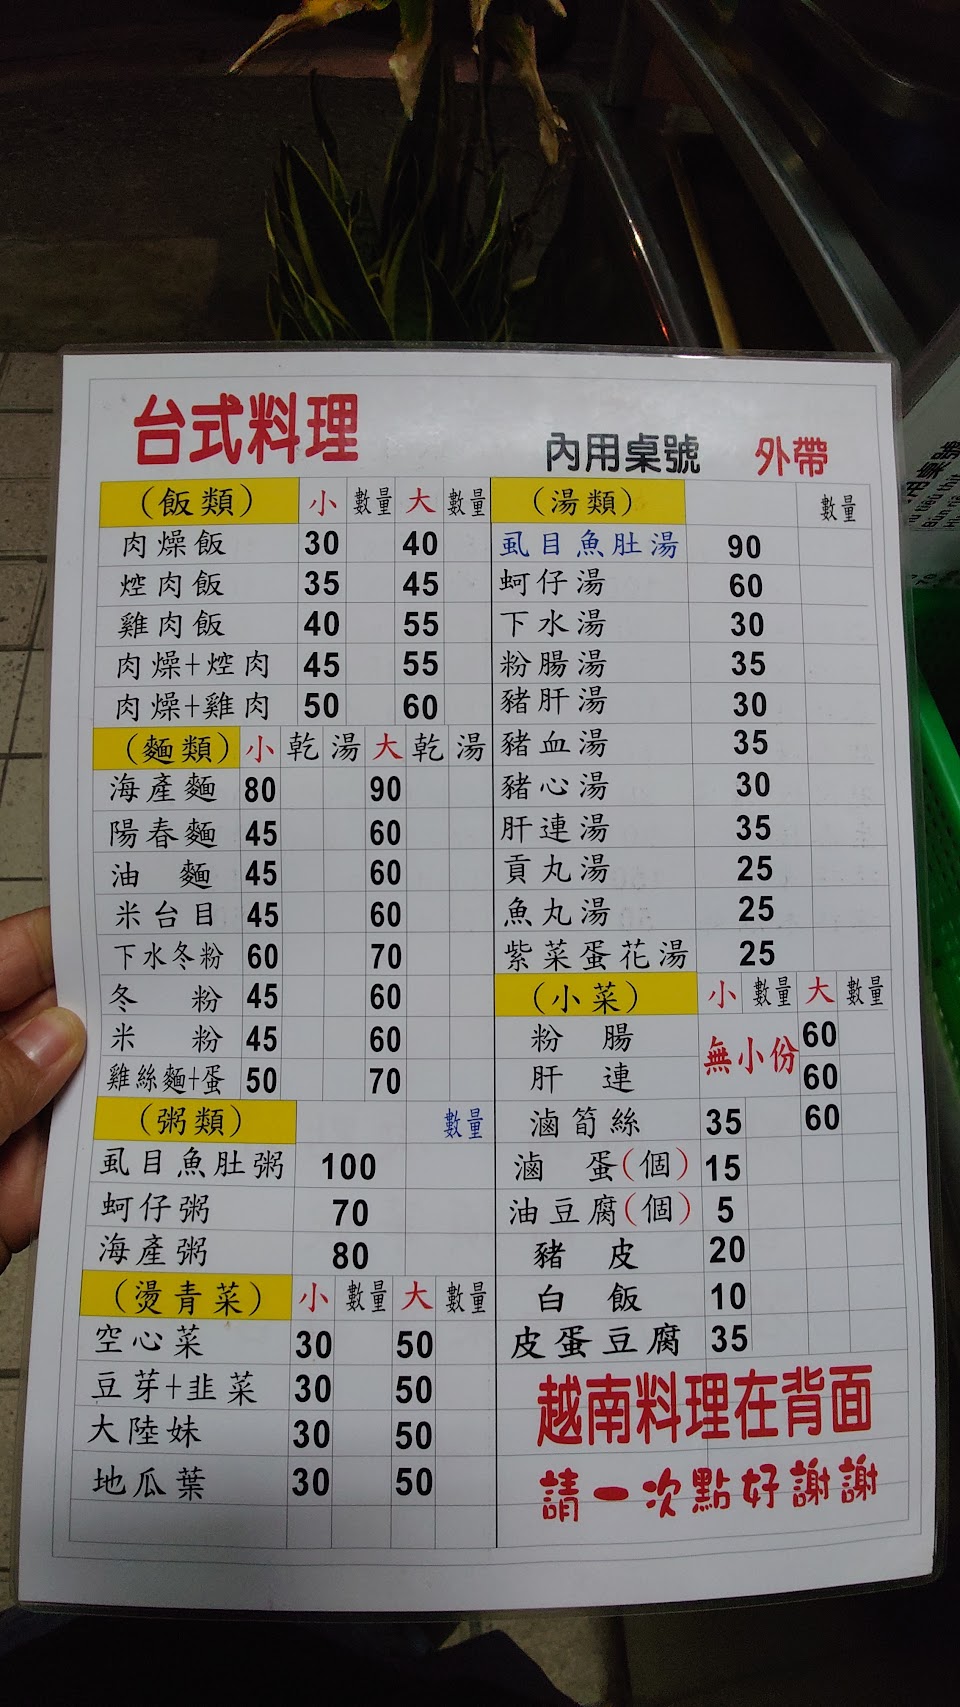 台式料理
內用桌號 外帶
（飯類） 小 數量 大 數量
肉燥飯 30 40
焢肉飯 35 45
雞肉飯 40 55
肉燥+焢肉 45 55
肉燥+雞肉 50 60
（麵類） 小 乾 湯 大 乾 湯
海產麵 80 90
陽春麵 45 60
油 麵 45 60
米台目 45 60
下水冬粉 60 70
冬 粉 45 60
米 粉 45 60
雞絲麵+蛋 50 70
（粥類） 數量
虱目魚肚粥 100
蚵仔粥 70
海產粥 80
（燙青菜） 小 數量 大 數量
空心菜 30 50
豆芽+韭菜 30 50
大陸妹 30 50
地瓜葉 30 50
（湯類） 數量
虱目魚肚湯 90
蚵仔湯 60
下水湯 30
粉腸湯 35
豬肝湯 30
豬血湯 35
豬心湯 30
肝連湯 35
貢丸湯 25
魚丸湯 25
紫菜蛋花湯 25
（小菜） 小 數量 大 數量
粉 腸 無小份 60
肝 連 60
滷筍絲 35 60
滷 蛋(個) 15
油豆腐(個) 5
豬 皮 20
白 飯 10
皮蛋豆腐 35
越南料理在背面
請一次點好謝謝